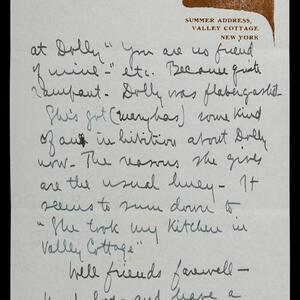 SUMMER ADDRESS,
VALLEY COTTAGE
NEW YORK
at Dolly "You are no friend
of mine-" etc. Became quite
rampant. Dolly was flabergasted.
She's got (merryhas) some kind
of an inhibition about Dolly
now - The reasons she gives
are the usual huey - It
seems to sum down to
"She took my Kitchen in
Valley Cottage"
Well friends farewell -
and have a